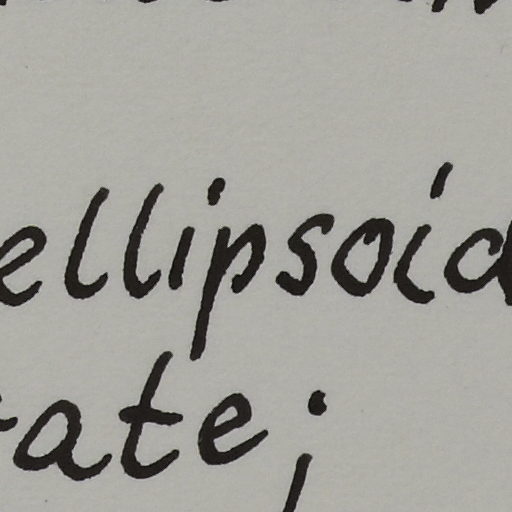 ellipsoid
ate;